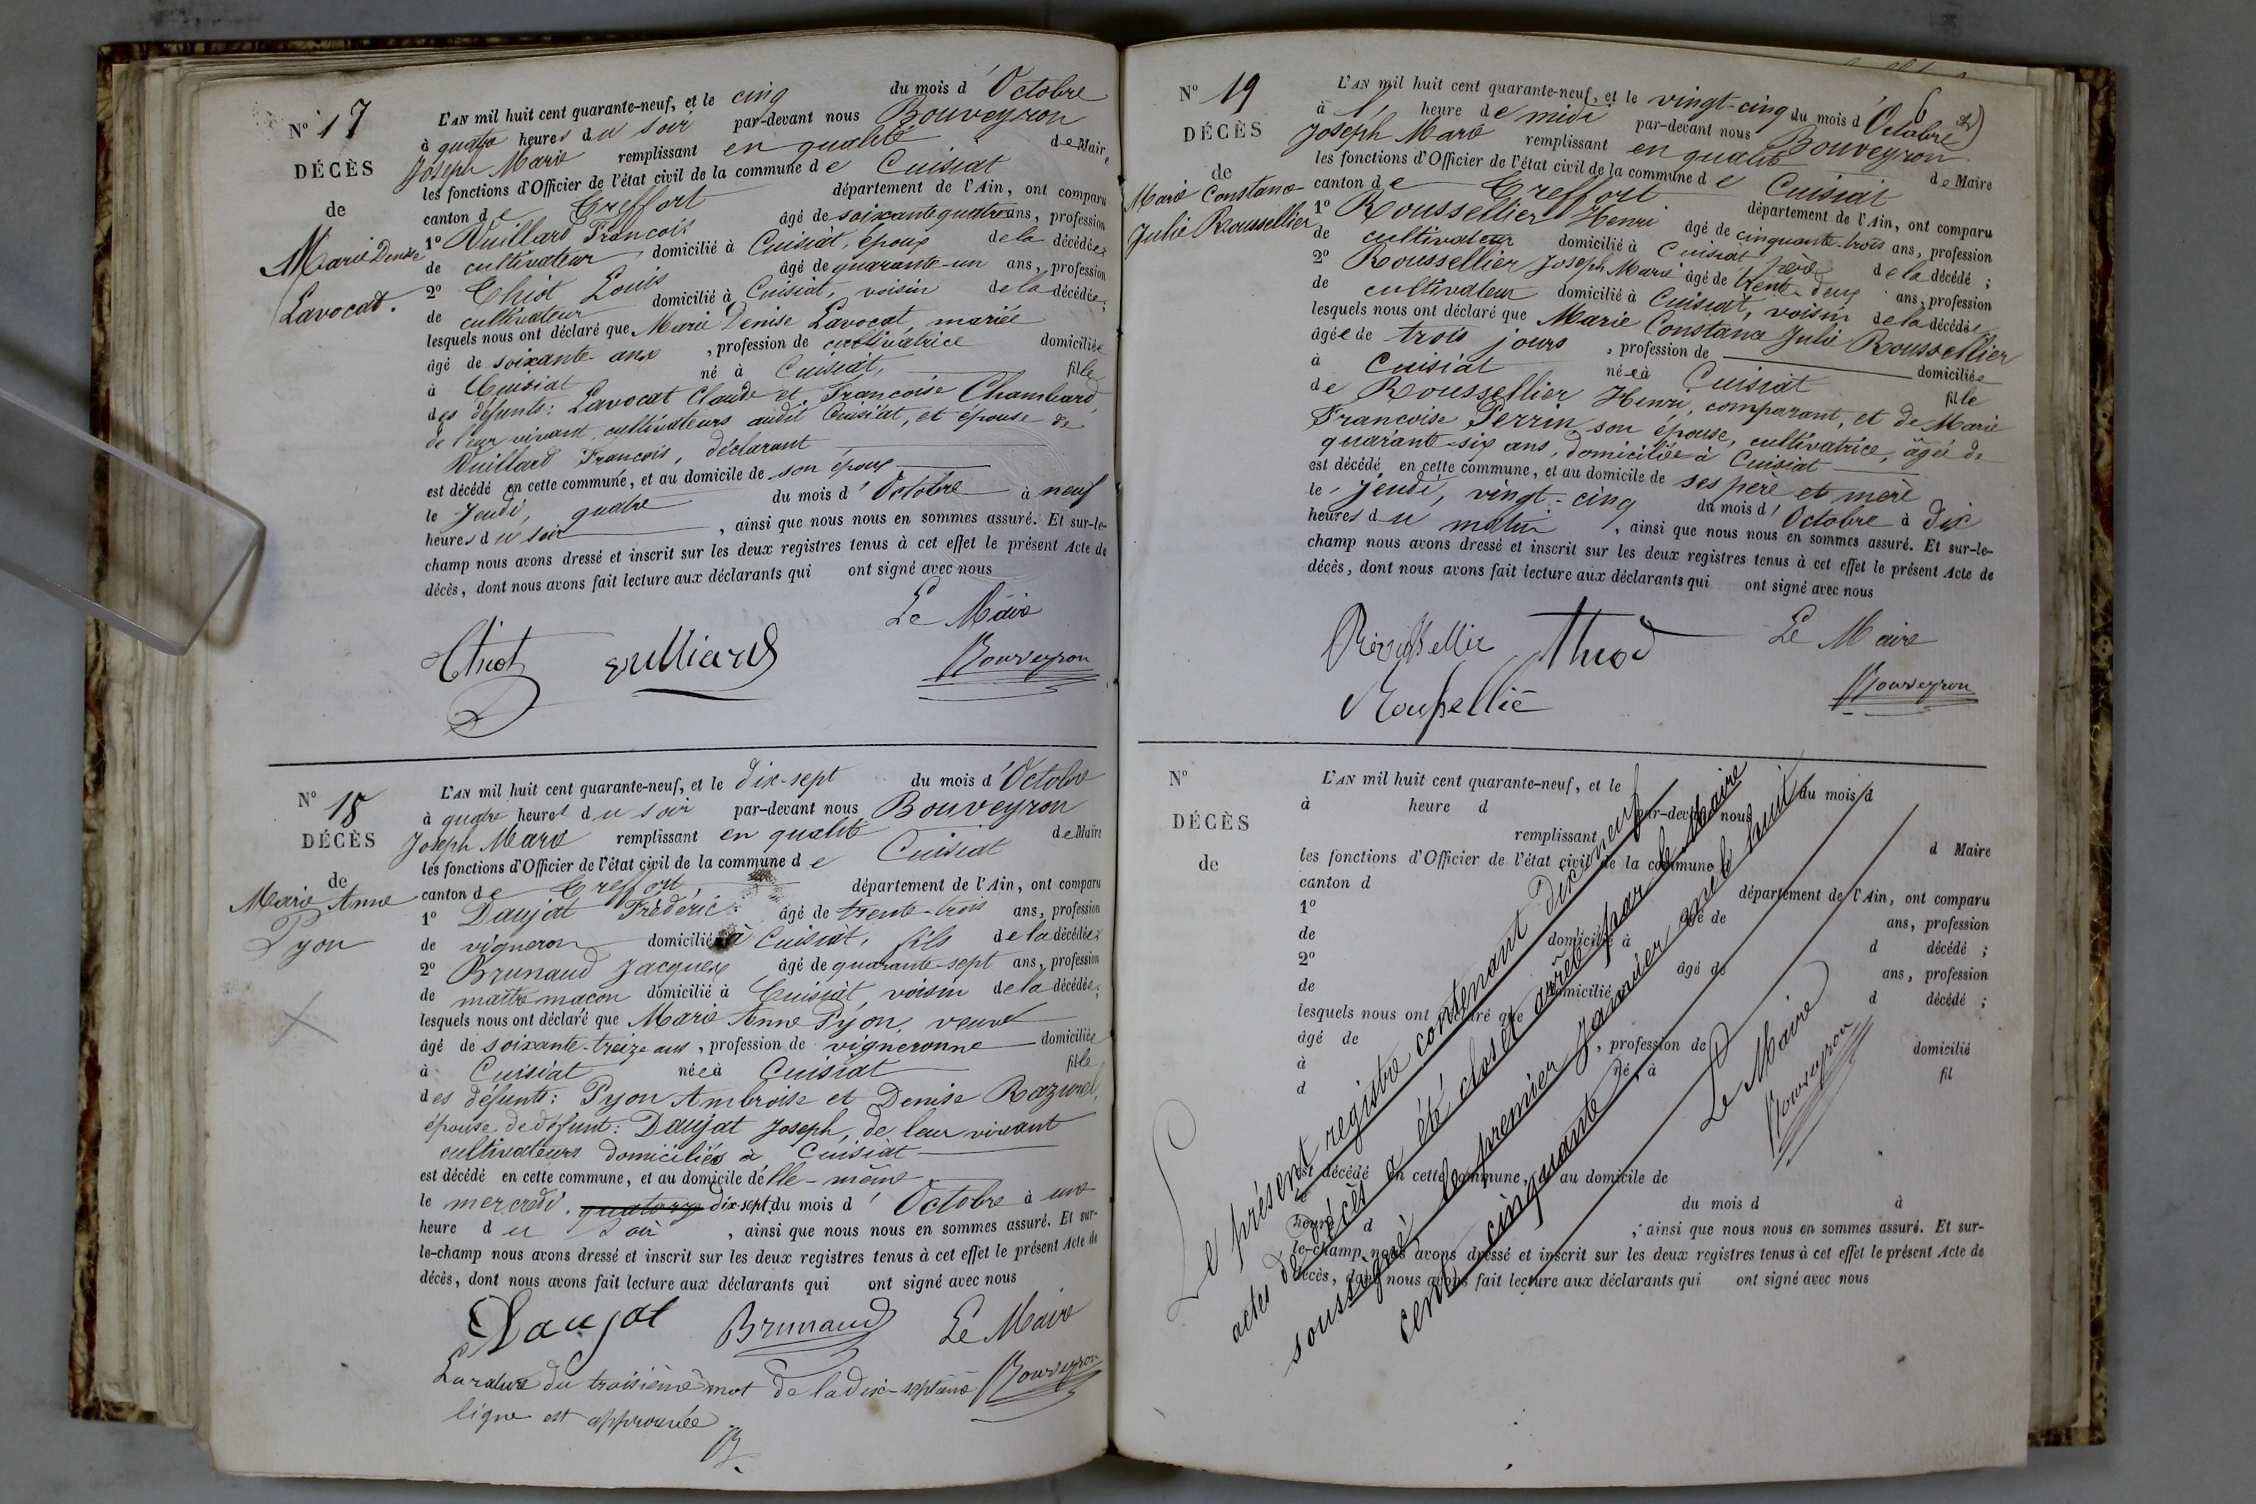 N° 17
DÉCÈS
de
Marie Denise
Lavocat.
L'AN mil huit cent quarante-neuf, et le cinq du mois d'Octobre
à quatre heures du soir par-devant nous Bouveyron
Joseph Marie remplissant en qualité de Maire
les fonctions d'Officier de l'état civil de la commune de Cuisiat
canton de Treffort département de l'Ain, ont comparu
1° Vuillard François âgé de soixante quatre ans, profession
de cultivateur domicilié à Cuisiat, époux de la décédée;
2° Thiot Louis âgé de quarante-un ans, profession
de cultivateur domicilié à Cuisiat, voisin de la décédée;
lesquels nous ont déclaré que Marie Denise Lavocat, mariée
âgé de soixante-ans, profession de cultivatrice domiciliée
à Cuisiat né à Cuisiat, fille
des défunts: Lavocat Claude et Françoise Chambard,
de leur vivant cultivateurs audit Cuisiat, et épouse de
Vuillard François, déclarant
est décédé en cette commune, et au domicile de son époux
le Jeudi, quatre du mois d'Octobre à neuf
heures du soir, ainsi que nous nous en sommes assuré. Et sur-le-
champ nous avons dressé et inscrit sur les deux registres tenus à cet effet le présent Acte de
décès, dont nous avons fait lecture aux déclarants qui ont signé avec nous
Le Maire
Thiot vulliard Bouveyron
N° 18
DÉCÈS
de
Marie Anne
Pyon
L'AN mil huit cent quarante-neuf, et le dix-sept du mois d'Octobre
à quatre heures du soir par-devant nous Bouveyron
Joseph Marie remplissant en qualité de Maire
les fonctions d'Officier de l'état civil de la commune de Cuisiat
canton de Treffort département de l'Ain, ont comparu
1° Daujat Frédéric âgé de trente-trois ans, profession
de vigneron domicilié à Cuisiat, fils de la décédée;
2° Brunaud Jacques âgé de quarante-sept ans, profession
de maître maçon domicilié à Cuisiat, voisin de la décédée;
lesquels nous ont déclaré que Marie Anne Pyon, veuve
âgé de soixante-treize ans, profession de vigneronne domiciliée
à Cuisiat née à Cuisiat fille
des défunts: Pyon Ambroise et Denise Razurel,
épouse de défunt: Daujat Joseph, de leur vivant
cultivateurs domiciliés à Cuisiat
est décédé en cette commune, et au domicile d'elle-même
le mercredi, quatorze dix-sept, du mois d'Octobre à une
heure du soir, ainsi que nous nous en sommes assuré. Et sur-
le-champ nous avons dressé et inscrit sur les deux registres tenus à cet effet le présent Acte de
décès, dont nous avons fait lecture aux déclarants qui ont signé avec nous
Daujat Brunaud Le Maire
La rature du troisième mot de la dix-septième Bouveyron
ligne est approuvée
B
6
N° 19
DÉCÈS
de
Marie Constance
Julie Roussellier
L'AN mil huit cent quarante-neuf, et le vingt-cinq du mois d'Octobre
à 1 heure de midi par-devant nous Bouveyron
Joseph Marie remplissant en qualité de Maire
les fonctions d'Officier de l'état civil de la commune de Cuisiat
canton de Treffort département de l'Ain, ont comparu
1° Roussellier Henri âgé de cinquante-trois ans, profession
de cultivateur domicilié à Cuisiat père de la décédé;
2° Roussellier Joseph Marie âgé de trente-deux ans, profession
de cultivateur domicilié à Cuisiat, voisin de la décédée
lesquels nous ont déclaré que Marie Constance Julie Roussellier
âgée de trois jours, profession de domiciliée
à Cuisiat née à Cuisiat fille
de Roussellier Henri, comparant, et de Marie
Françoise Perrin son épouse, cultivatrice, âgée de
quarante-six ans, domiciliée à Cuisiat
est décédé en cette commune, et au domicile de ses père et mère
le Jeudi, vingt-cinq du mois d'Octobre à dix
heures du matin, ainsi que nous nous en sommes assuré. Et sur-le-
champ nous avons dressé et inscrit sur les deux registres tenus à cet effet le présent Acte de
décès, dont nous avons fait lecture aux déclarants qui ont signé avec nous
Roussellier Thiod Le Maire
Roussellié Bouveyron
N°
DÉCÈS
de
L'AN mil huit cent quarante-neuf, et le du mois d
à heure d par-devant nous
remplissant d Maire
les fonctions d'Officier de l'état civil de la commune
canton d département de l'Ain, ont comparu
1° âgé de ans, profession
de domicilié à d décédé;
2° âgé de ans, profession
de domicilié d décédé;
lesquels nous ont déclaré que
âgé de, profession de domicilié
à né à fil
d
est décédé en cette commune, et au domicile de
le du mois d à
heure d, ainsi que nous nous en sommes assuré. Et sur-
le-champ nous avons dressé et inscrit sur les deux registres tenus à cet effet le présent Acte de
décès, dont nous avons fait lecture aux déclarants qui ont signé avec nous
Le présent registre contenant dix neuf
actes de décès a été clos et arrêté par le Maire
soussigné, le premier Janvier mil huit
cent cinquante
Le Maire
Bouveyron